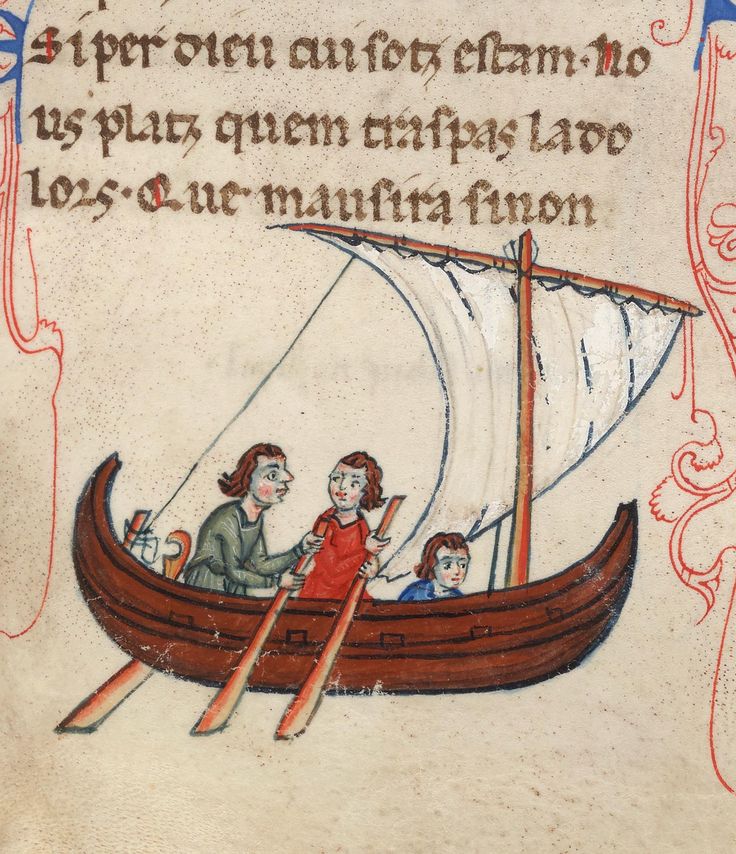 Si per dieu cui sotz estam· No
us platz quem traspas lado
lors· Que mausira sinon